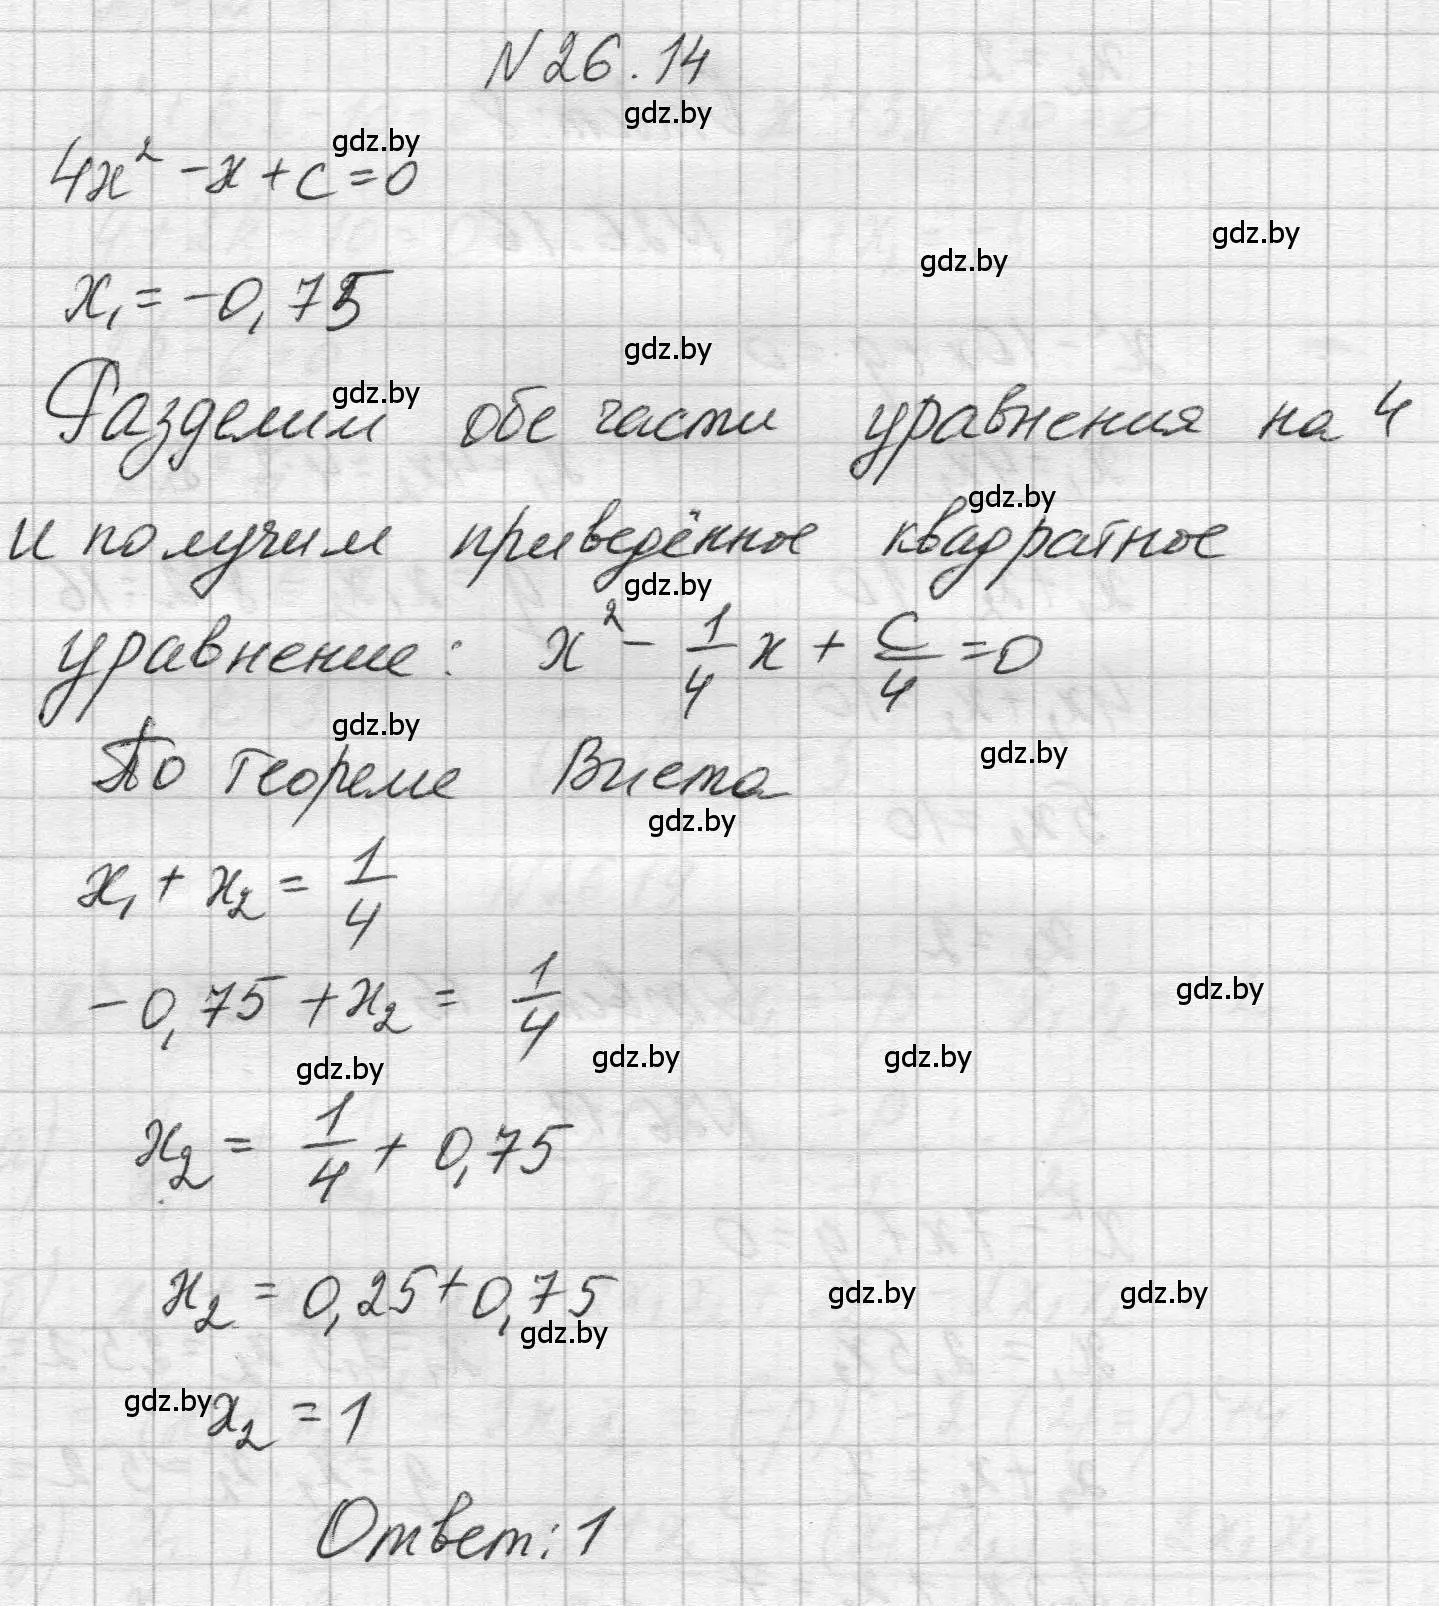 N 26.14
gdz.by
gdz.by
4x² - x + c = 0
gdz.by
gdz.by
x₁ = -0,75
gdz.by
gdz.by
Разделим обе части уравнения на 4
gdz.by
и получим приведённое квадратное
gdz.by
уравнение: x² - 1/4 x + c/4 = 0
gdz.by
gdz.by
По теореме Виета
gdz.by
x₁ + x₂ = 1/4
gdz.by
-0,75 + x₂ = 1/4
gdz.by gdz.by gdz.by
x₂ = 1/4 + 0,75
gdz.by gdz.by
x₂ = 0,25 + 0,75
gdz.by
gdz.by
x₂ = 1
Ответ: 1